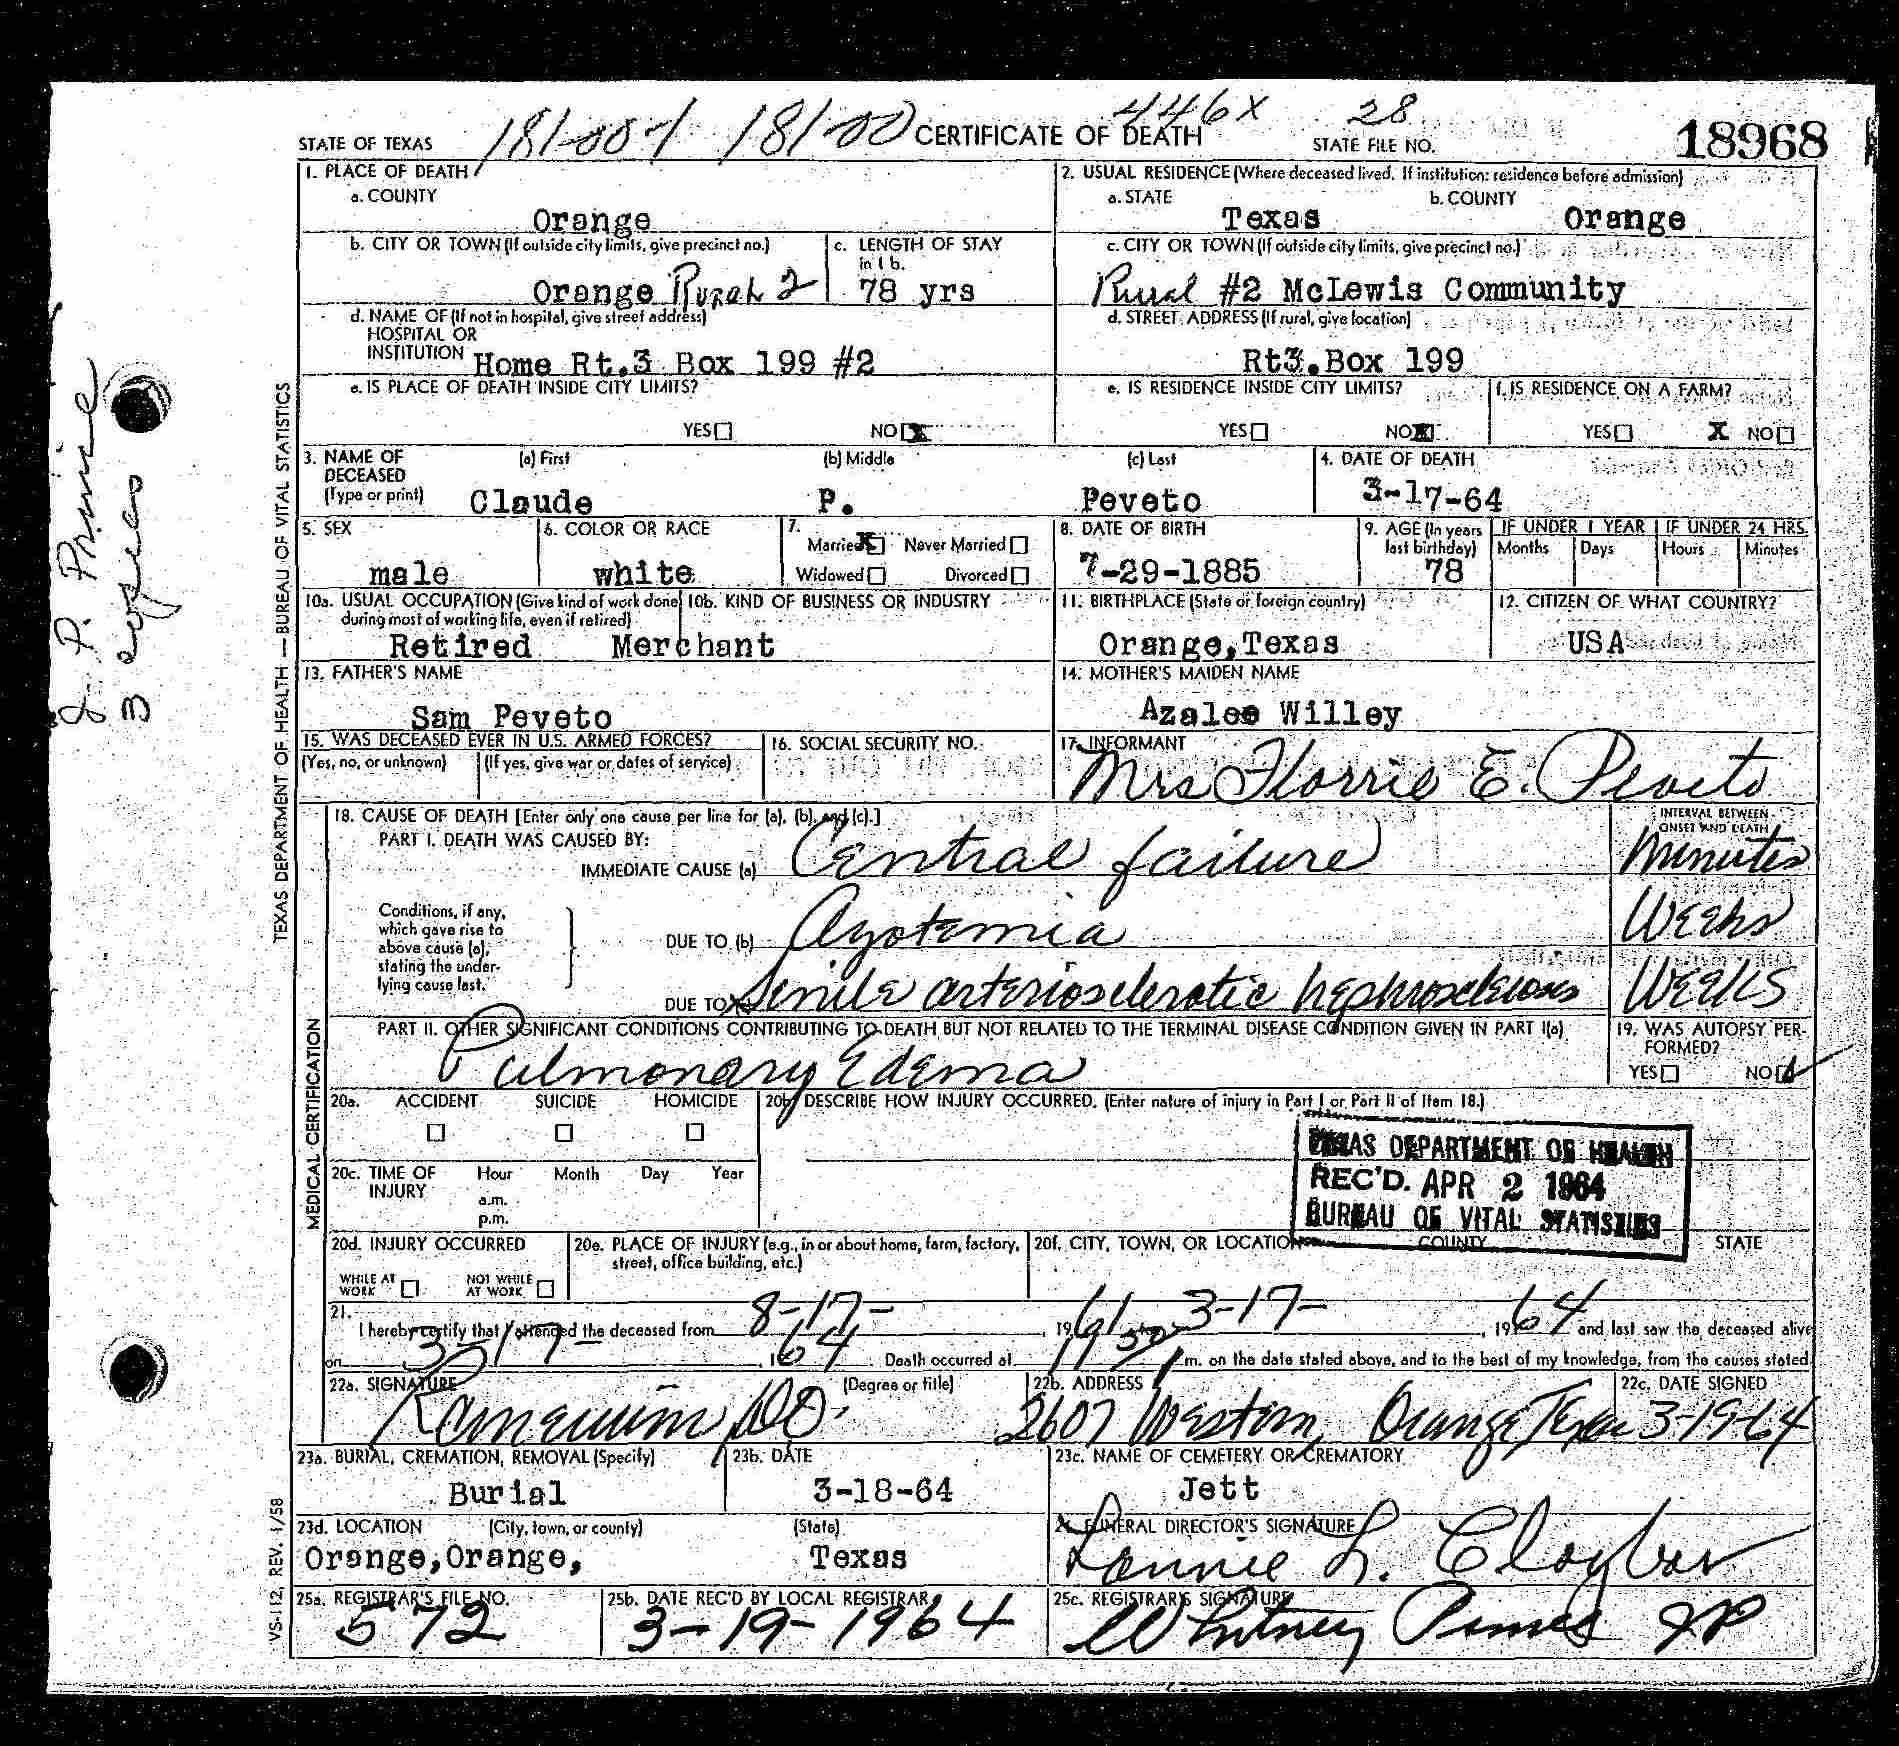 181-00-1 181-00 CERTIFICATE OF DEATH 446X 28
STATE OF TEXAS STATE FILE NO. 18968
1. PLACE OF DEATH
a. COUNTY
Orange
2. USUAL RESIDENCE (Where deceased lived. If institution: residence before admission)
a. STATE b. COUNTY
Texas Orange
b. CITY OR TOWN (If outside city limits, give precinct no.)
Orange Rural 2
c. LENGTH OF STAY in 1 b.
78 yrs
c. CITY OR TOWN (If outside city limits, give precinct no.)
Rural #2 McLewis Community
d. NAME OF (If not in hospital, give street address)
HOSPITAL OR
INSTITUTION Home Rt.3 Box 199 #2
d. STREET ADDRESS (If rural, give location)
Rt3.Box 199
e. IS PLACE OF DEATH INSIDE CITY LIMITS?
YES NO X
e. IS RESIDENCE INSIDE CITY LIMITS?
YES NO X
f. IS RESIDENCE ON A FARM?
YES X NO
3. NAME OF DECEASED (Type or print)
(a) First (b) Middle (c) Last
Claude P. Peveto
4. DATE OF DEATH
3-17-64
5. SEX
male
6. COLOR OR RACE
white
7.
Married X Never Married
Widowed Divorced
8. DATE OF BIRTH
7-29-1885
9. AGE (In years last birthday)
78
IF UNDER 1 YEAR IF UNDER 24 HRS.
Months Days Hours Minutes
10a. USUAL OCCUPATION (Give kind of work done during most of working life, even if retired)
Retired Merchant
10b. KIND OF BUSINESS OR INDUSTRY
11. BIRTHPLACE (State or foreign country)
Orange,Texas
12. CITIZEN OF WHAT COUNTRY?
USA
13. FATHER'S NAME
Sam Peveto
14. MOTHER'S MAIDEN NAME
Azalee Willey
15. WAS DECEASED EVER IN U.S. ARMED FORCES?
(Yes, no, or unknown) (If yes, give war or dates of service)
16. SOCIAL SECURITY NO.
17. INFORMANT
Mrs Florrie E. Peveto
18. CAUSE OF DEATH [Enter only one cause per line for (a), (b), and (c).]
PART I. DEATH WAS CAUSED BY:
IMMEDIATE CAUSE (a) Central failure
INTERVAL BETWEEN ONSET AND DEATH
Minutes
Conditions, if any, which gave rise to above cause (a), stating the underlying cause last.
DUE TO (b) Azotemia Weeks
DUE TO Senile arteriosclerotic nephrosclerosis Weeks
PART II. OTHER SIGNIFICANT CONDITIONS CONTRIBUTING TO DEATH BUT NOT RELATED TO THE TERMINAL DISEASE CONDITION GIVEN IN PART I(a)
Pulmonary Edema
19. WAS AUTOPSY PERFORMED?
YES NO
20a. ACCIDENT SUICIDE HOMICIDE
20b. DESCRIBE HOW INJURY OCCURRED. (Enter nature of injury in Part I or Part II of Item 18.)
20c. TIME OF INJURY Hour Month Day Year
a.m.
p.m.
TEXAS DEPARTMENT OF HEALTH
REC'D. APR 2 1964
BUREAU OF VITAL STATISTICS
20d. INJURY OCCURRED
WHILE AT WORK NOT WHILE AT WORK
20e. PLACE OF INJURY (e.g., in or about home, farm, factory, street, office building, etc.)
20f. CITY, TOWN, OR LOCATION COUNTY STATE
21.
I hereby certify that I attended the deceased from 8-17- , 1961 3-17- , 1964 and last saw the deceased alive
on 3-17- , 1964 . Death occurred at m. on the date stated above, and to the best of my knowledge, from the causes stated.
22a. SIGNATURE (Degree or title)
DO.
22b. ADDRESS
2607 Western, Orange Texas
22c. DATE SIGNED
3-19-64
23a. BURIAL, CREMATION, REMOVAL (Specify)
Burial
23b. DATE
3-18-64
23c. NAME OF CEMETERY OR CREMATORY
Jett
23d. LOCATION (City, town, or county) (State)
Orange,Orange, Texas
24. FUNERAL DIRECTOR'S SIGNATURE
Lonnie L. Claybar
25a. REGISTRAR'S FILE NO.
572
25b. DATE REC'D BY LOCAL REGISTRAR
3-19-1964
25c. REGISTRAR'S SIGNATURE
Whitney JP
TEXAS DEPARTMENT OF HEALTH — BUREAU OF VITAL STATISTICS
MEDICAL CERTIFICATION
VS-112, REV. 1/58